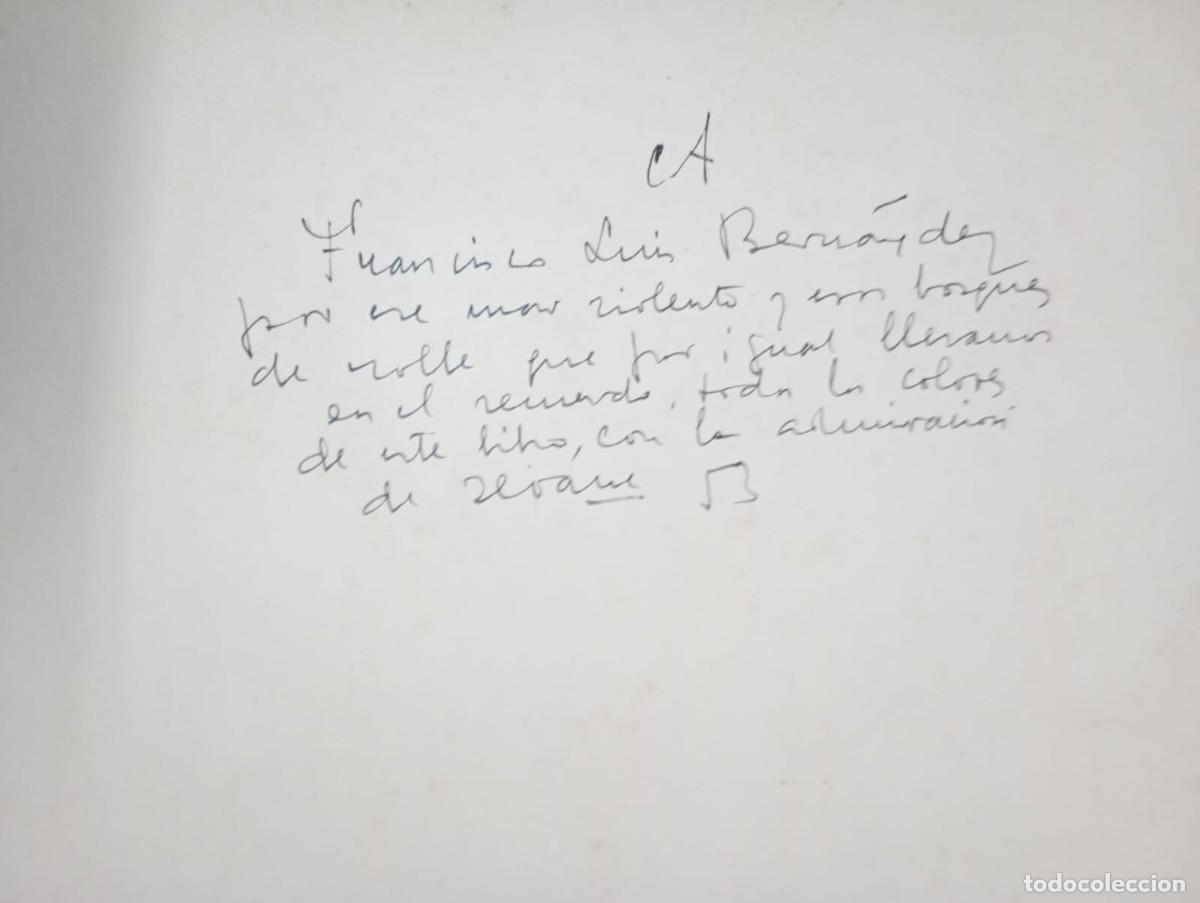 A
Francisco Luis Bernárdez
por ese mar violento y esos bosques
de roble que por igual llevamos
en el recuerdo, todos los colores
de este libro, con la admiración
de Seoane
todocoleccion